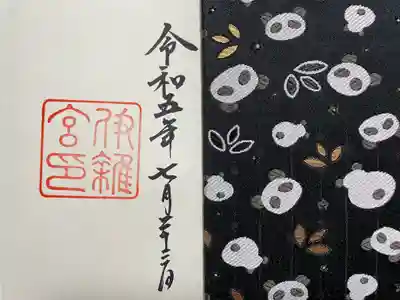 令和五年七月廿三日
伊雜
宮印